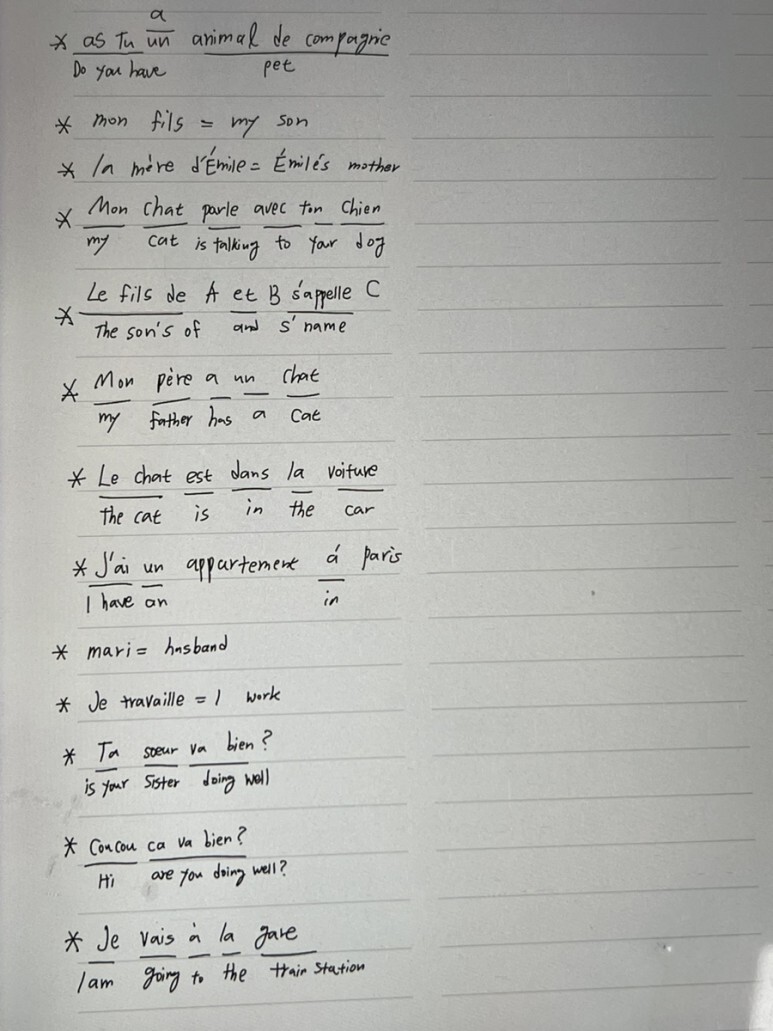 a
* as Tu un animal de compagnie
Do you have pet
* mon fils = my son
* la mère d'Émile = Émile's mother
* Mon chat parle avec ton chien
my cat is talking to your dog
* Le fils de A et B s'appelle C
The son's of and s' name
* Mon père a un chat
my father has a cat
* Le chat est dans la voiture
the cat is in the car
* J'ai un appartement á paris
I have an in
* mari = husband
* Je travaille = I work
* Ta soeur va bien?
is your sister doing well
* Coucou ca va bien?
Hi are you doing well?
* Je vais à la gare
I am going to the train station